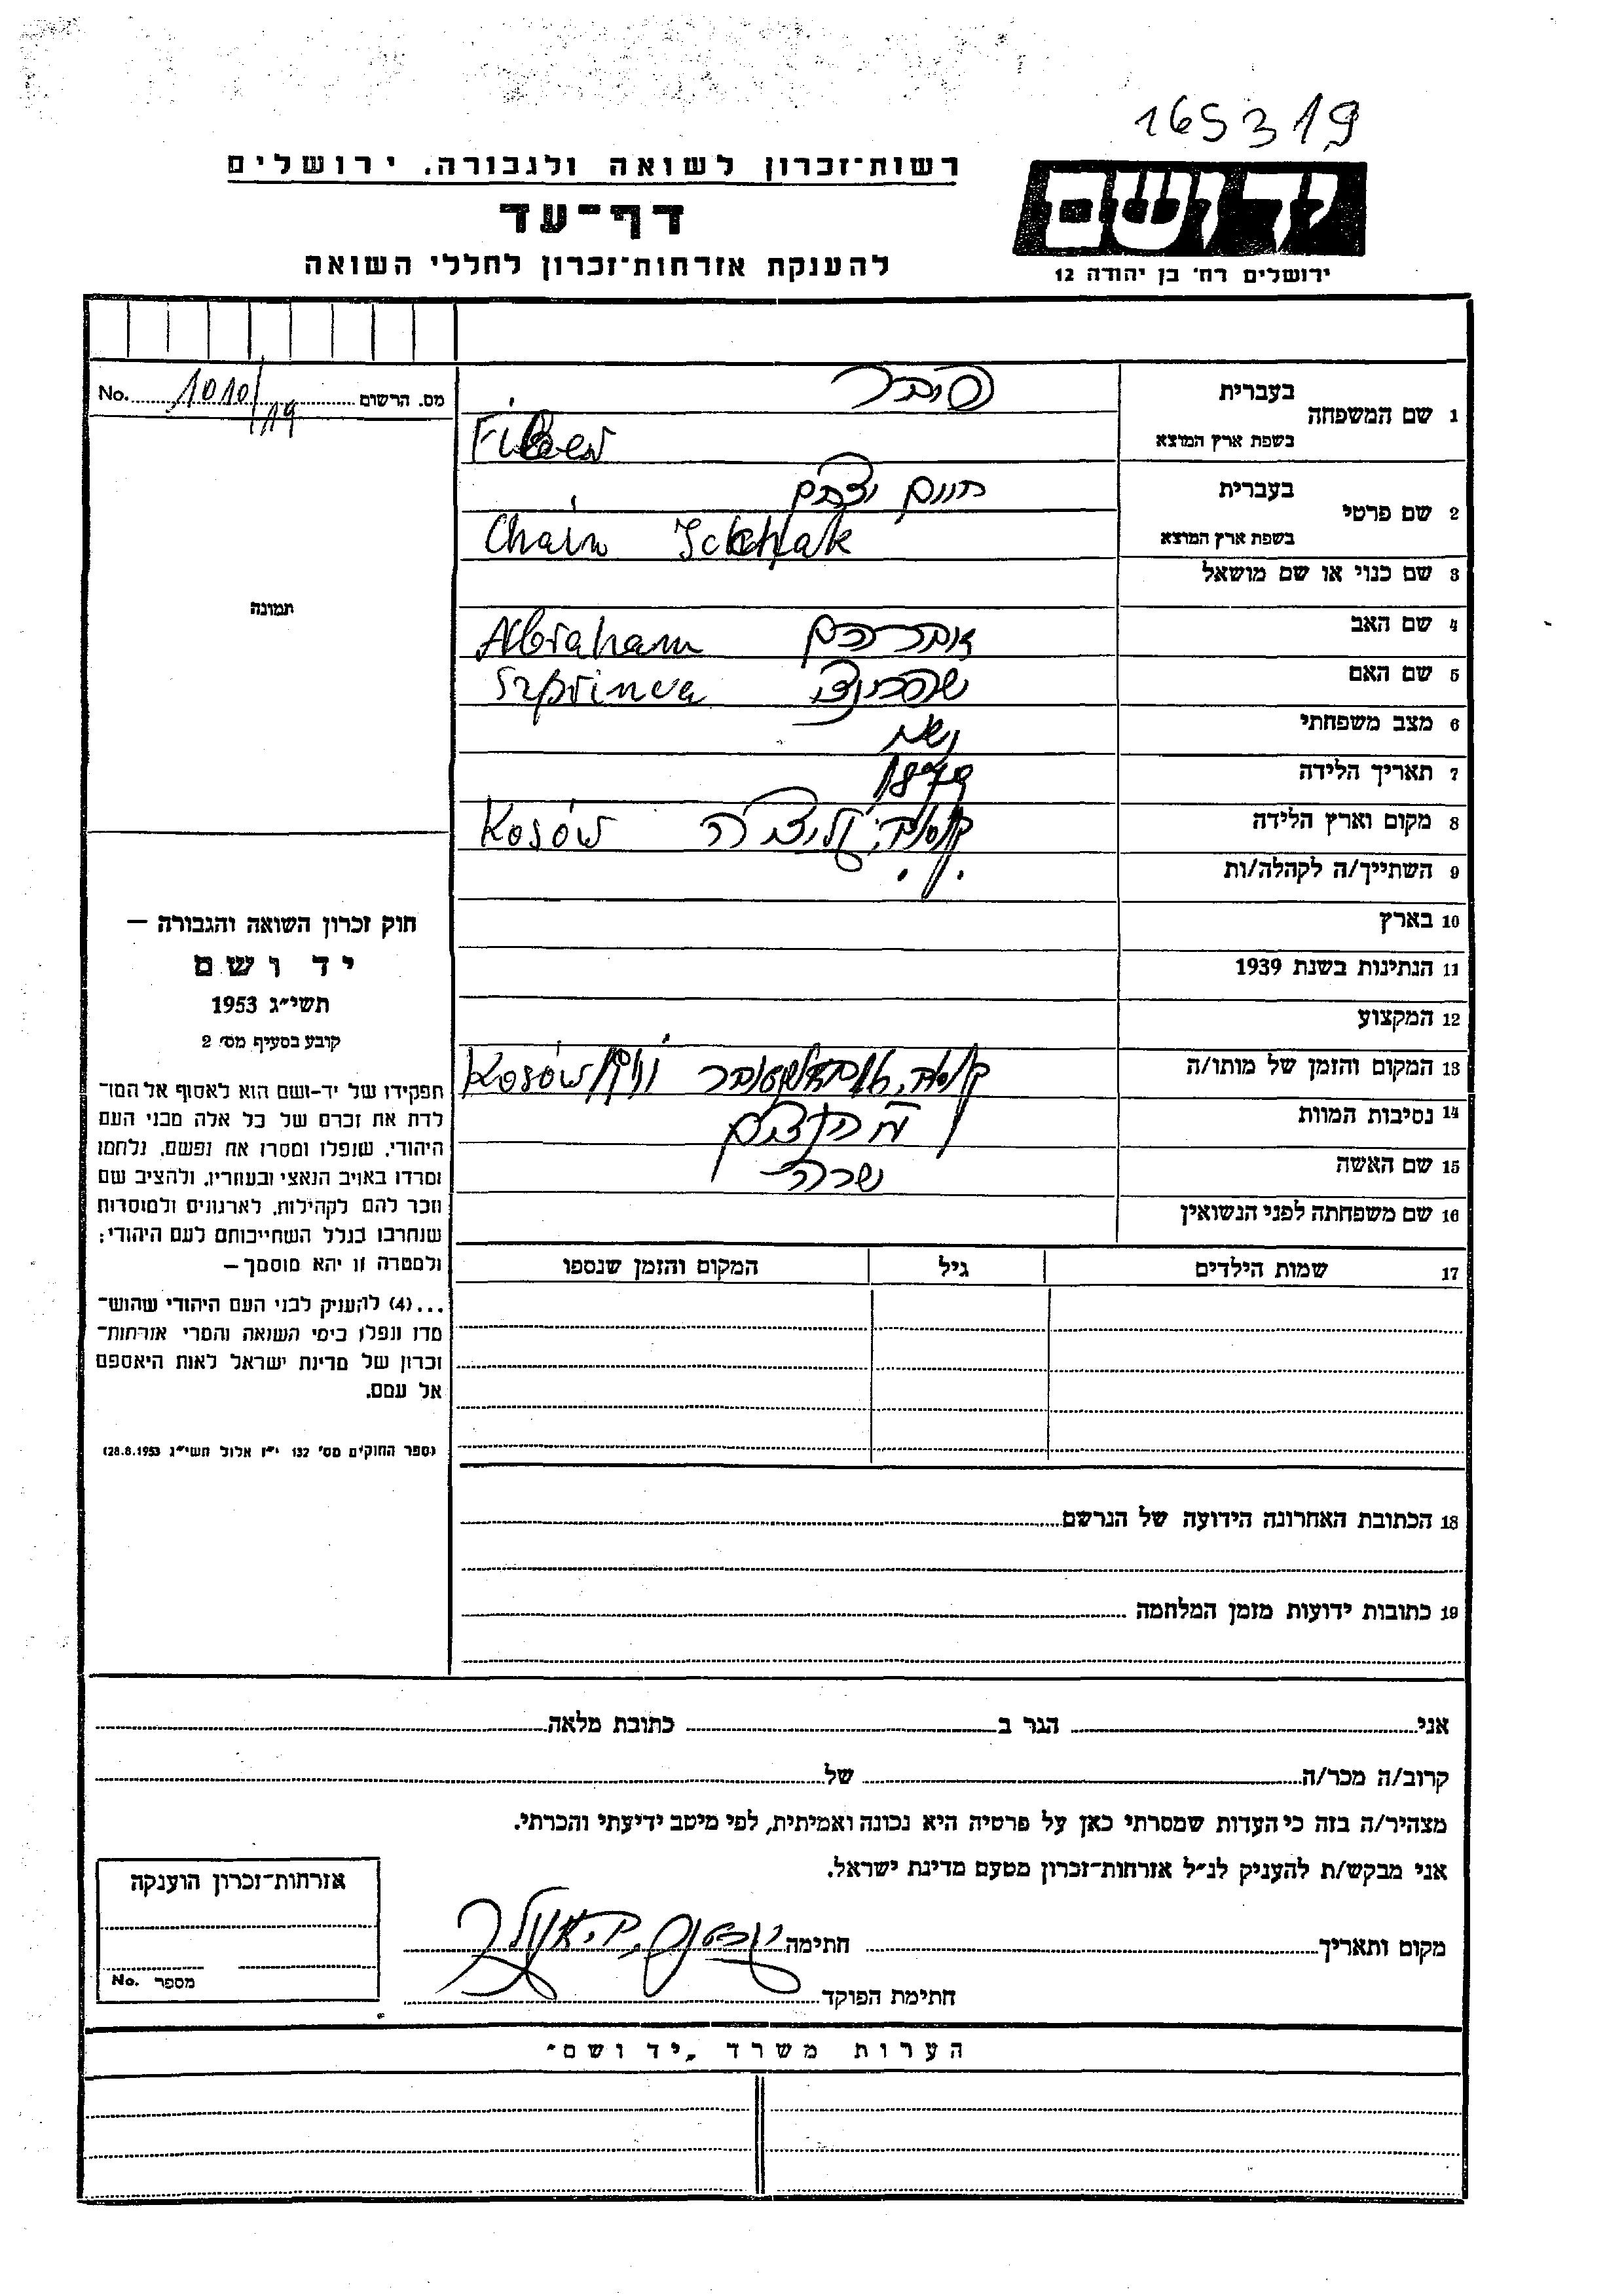 165319
ידושם
ירושלים רח׳ בן יהודה 12
רשות־זכרון לשואה ולגבורה. ירושלים
דף־עד
להענקת אזרחות־זכרון לחללי השואה
מס. הרשום 1010/19 No.
1 שם המשפחה
בעברית פיבר
בשפת ארץ המוצא Fiber
2 שם פרטי
בעברית חיים יצחק
בשפת ארץ המוצא Chaim
3 שם כנוי או שם מושאל
4 שם האב אברהם Abraham
5 שם האם שפרינצה Szprinca
6 מצב משפחתי נשוי
7 תאריך הלידה 1879
8 מקום וארץ הלידה Kosów
9 השתייך/ה לקהלה/ות
10 בארץ
11 הנתינות בשנת 1939
12 המקצוע
13 המקום והזמן של מותו/ה Kosów
14 נסיבות המוות
15 שם האשה שרה
16 שם משפחתה לפני הנשואין
17 שמות הילדים גיל המקום והזמן שנספו
18 הכתובת האחרונה הידועה של הנרשם
19 כתובות ידועות מזמן המלחמה
תמונה
חוק זכרון השואה והגבורה —
יד ושם
תשי״ג 1953
קובע בסעיף מס׳ 2
תפקידו של יד-ושם הוא לאסוף אל המו־
לדת את זכרם של כל אלה מבני העם
היהודי, שנפלו ומסרו את נפשם, נלחמו
ומרדו באויב הנאצי ובעוזריו, ולהציב שם
וזכר להם לקהילות, לארגונים ולמוסדות
שנחרבו בגלל השתייכותם לעם היהודי;
ולמטרה זו יהא מוסמך —
...(4) להעניק לבני העם היהודי שהוש־
מדו ונפלו בימי השואה והמרי אזרחות־
זכרון של מדינת ישראל לאות היאספם
אל עמם.
(ספר החוקים מס׳ 132 י״ז אלול תשי״ג 28.8.1953)
אני הגר ב כתובת מלאה
קרוב/ה מכר/ה של
מצהיר/ה בזה כי העדות שמסרתי כאן על פרטיה היא נכונה ואמיתית, לפי מיטב ידיעתי והכרתי.
אני מבקש/ת להעניק לנ״ל אזרחות־זכרון מטעם מדינת ישראל.
מקום ותאריך חתימה
חתימת הפוקד
אזרחות־זכרון הוענקה
מספר No.
הערות משרד „יד ושם״